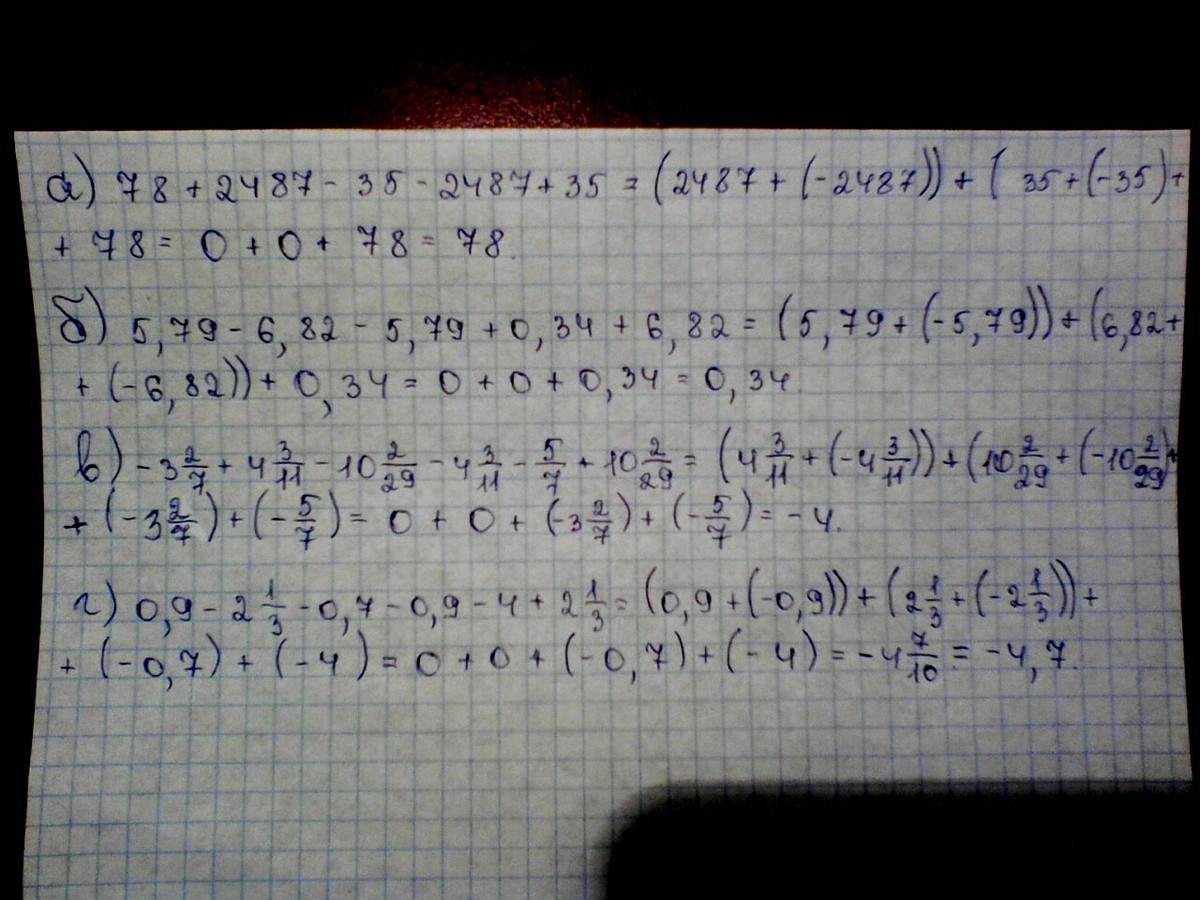 а) 78 + 2487 - 35 - 2487 + 35 = (2487 + (-2487)) + ( 35 + (-35) +
+ 78 = 0 + 0 + 78 = 78.
б) 5,79 - 6,82 - 5,79 + 0,34 + 6,82 = (5,79 + (-5,79)) + (6,82 +
+ (-6,82)) + 0,34 = 0 + 0 + 0,34 = 0,34.
в) -3 2/7 + 4 3/11 - 10 2/29 - 4 3/11 - 5/7 + 10 2/29 = (4 3/11 + (-4 3/11)) + (10 2/29 + (-10 2/29) +
+ (-3 2/7) + (-5/7) = 0 + 0 + (-3 2/7) + (-5/7) = -4.
г) 0,9 - 2 1/3 - 0,7 - 0,9 - 4 + 2 1/3 = (0,9 + (-0,9)) + (2 1/3 + (-2 1/3)) +
+ (-0,7) + (-4) = 0 + 0 + (-0,7) + (-4) = -4 7/10 = -4,7.